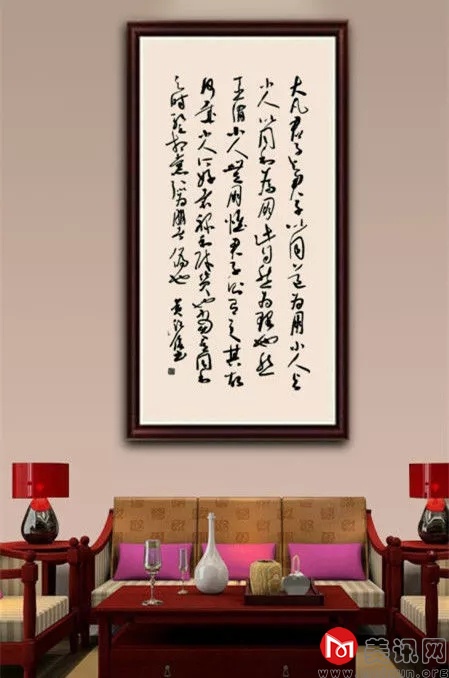 大凡君子与君子以同道为朋小人与
小人以同利为朋此自然之理也然
臣谓小人无朋惟君子则有之其故
何哉小人所好者禄利财货也当其同利
之时暂相党引以为朋者伪也
美讯网